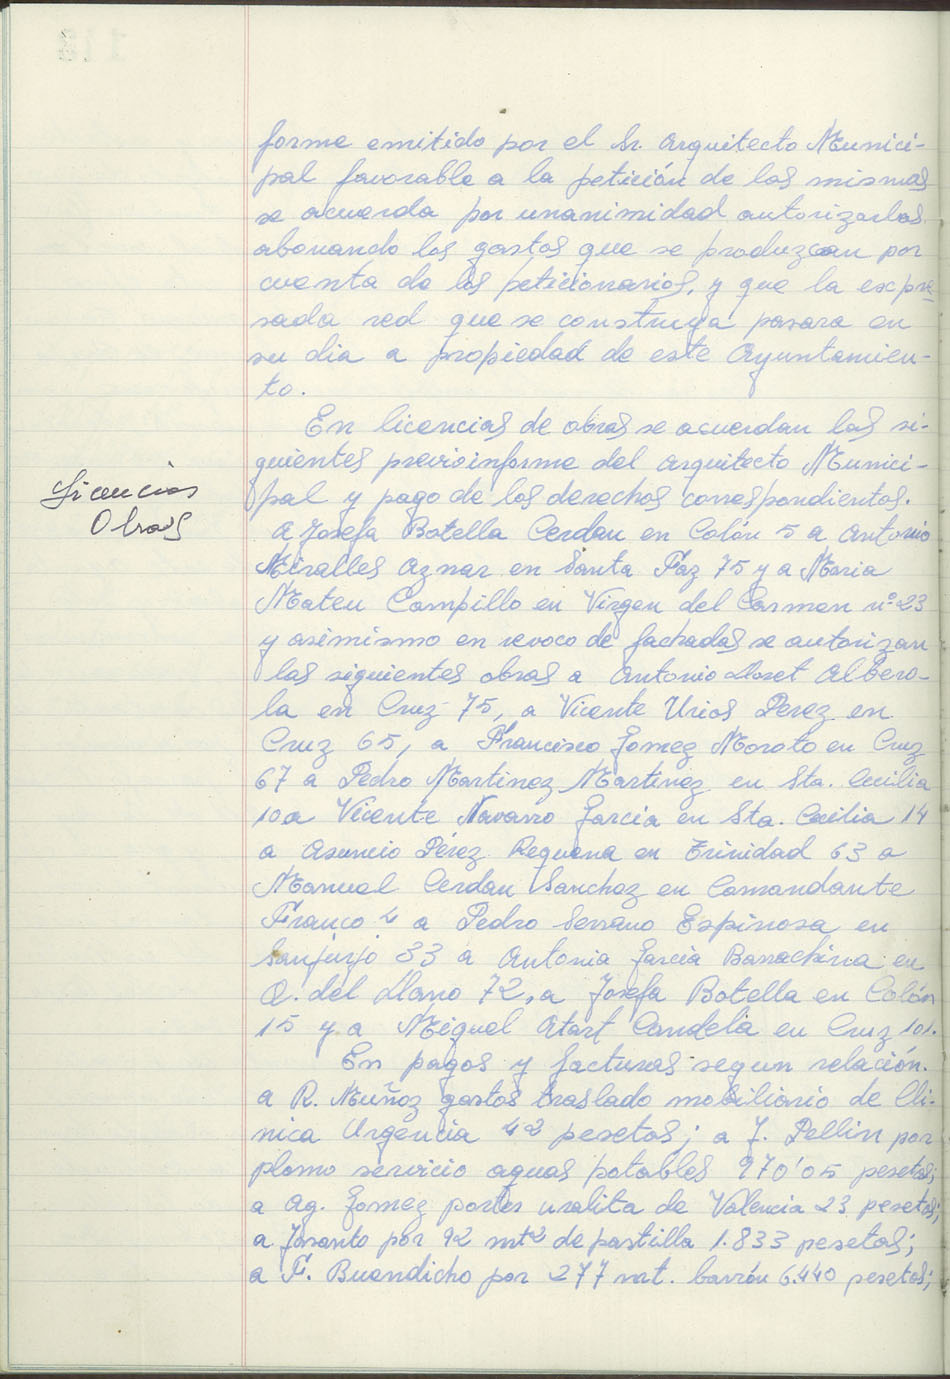 forme emitido por el Sr. Arquitecto Munici-
pal favorable a la petición de las mismas
se acuerda por unanimidad autorizarlas
abonando los gastos que se produzcan por
cuenta de los peticionarios, y que la expre-
sada red que se construya pasara en
su dia a propiedad de este Ayuntamien-
to.
En licencias de obras se acuerdan las si-
guientes previo informe del Arquitecto Munici-
Licencias
pal y pago de los derechos correspondientes.
Obras
A Josefa Botella Cerdan en Colón 5 a Antonio
Miralles Aznar en Santa Faz 75 y a Maria
Mateu Campillo en Virgen del Carmen nº 23
y asimismo en revoco de fachadas se autorizan
las siguientes obras a Antonio Lloret Albero-
la en Cruz 75, a Vicente Urios Perez en
Cruz 65, a Francisco Gomez Moroto en Cruz
67 a Pedro Martinez Martinez en Sta. Cecilia
10 a Vicente Navarro Garcia en Sta. Cecilia 14
a Asuncio Pérez Requena en Trinidad 63 a
Manuel Cerdan Sanchez en Comandante
Franco 4 a Pedro Serrano Espinosa en
Sanjurjo 33 a Antonia Garcia Barrachina en
Q. del Llano 72, a Josefa Botella en Colón
15 y a Miguel Candela en Cruz 101.
En pagos y facturas segun relación.
a R. Muñoz gastos traslado mobiliario de Cli-
nica Urgencia 42 pesetas; a J. Pellin por
plomo servicio aguas potables 970'05 pesetas;
a Ag. Gomez portes uralita de Valencia 23 pesetas;
a por 92 mt2 de pastilla 1.833 pesetas;
a F. Buendicho por 277 mt. barrón 6.440 pesetas;